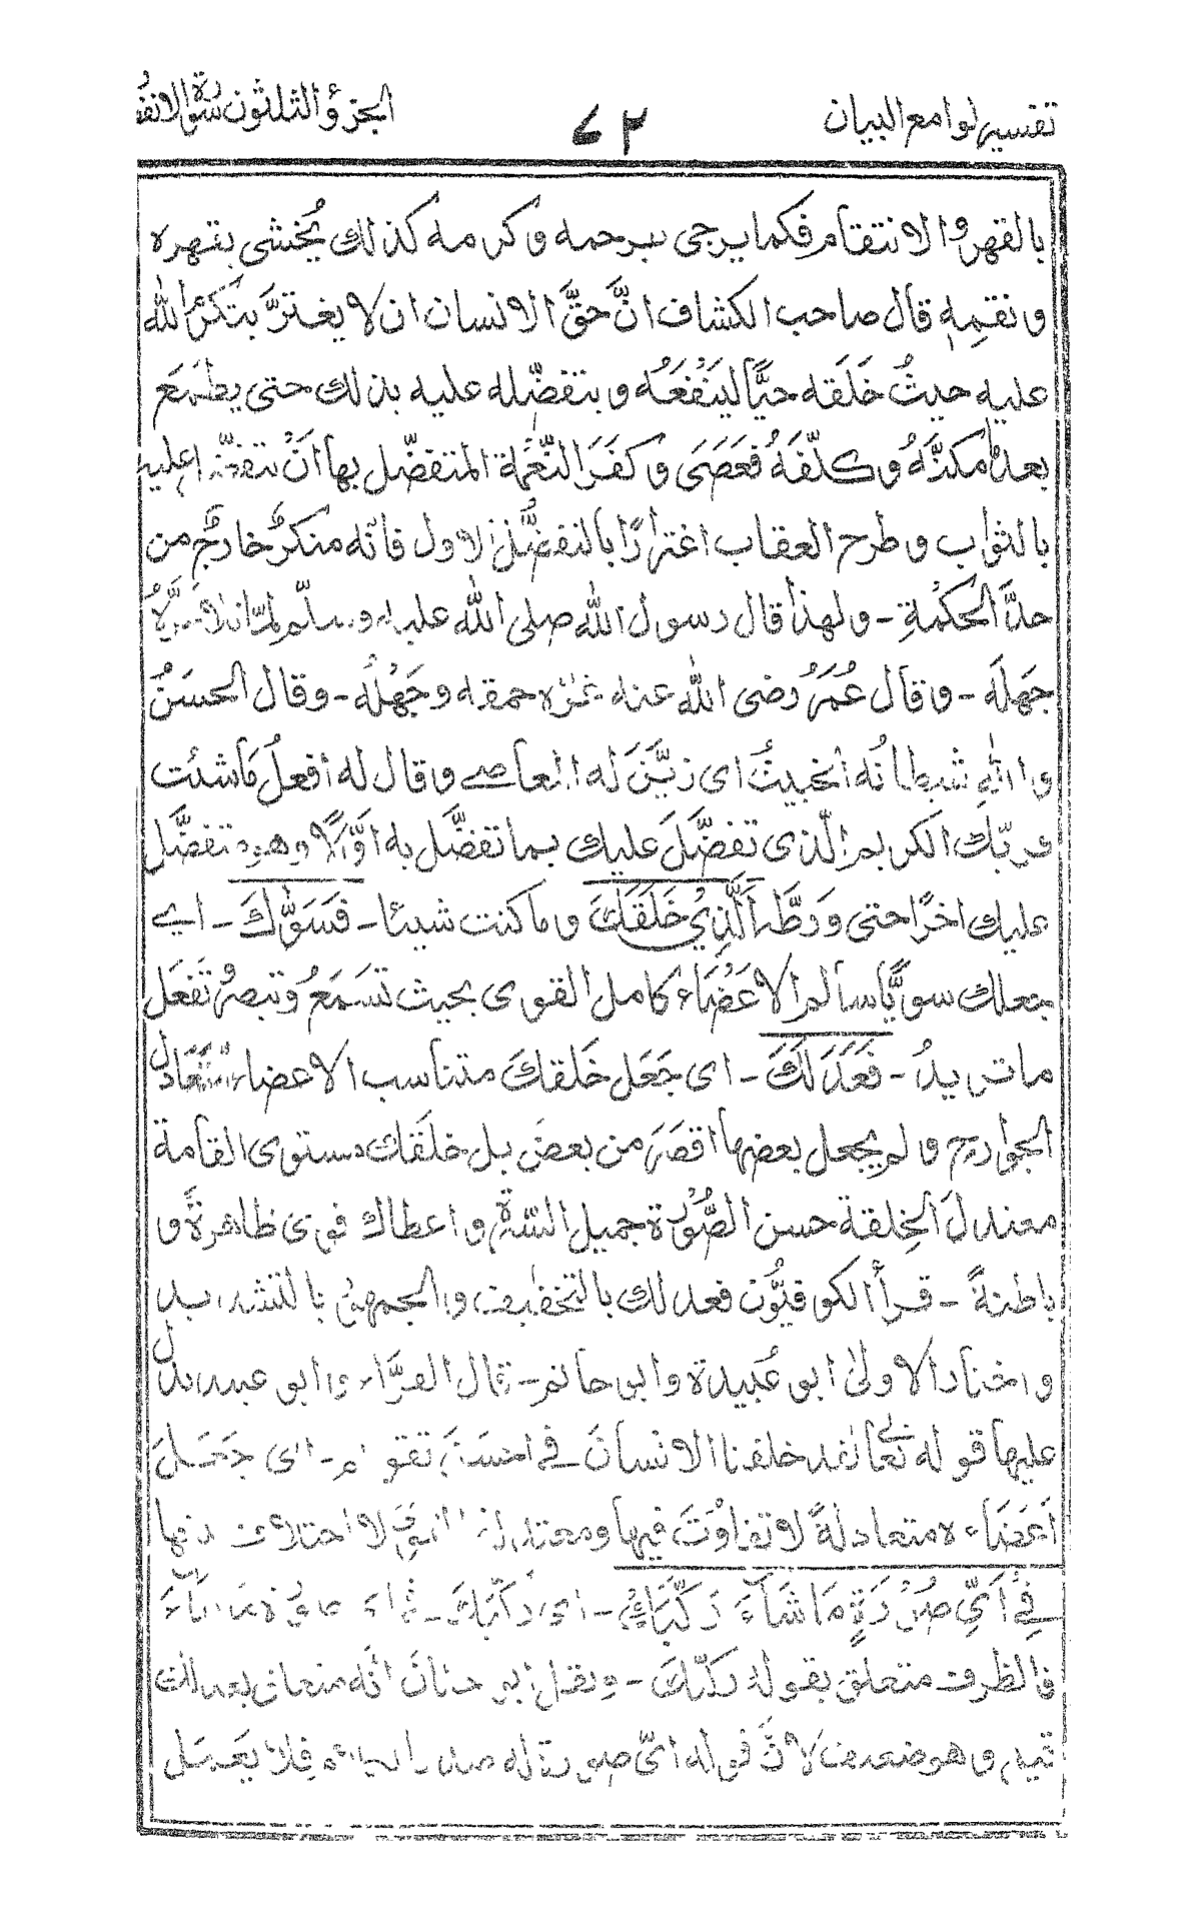 تفسير لوامع البيان ٧٢ الجزؤ الثلثون سورة الانفط
بالقهر والانتقام فكما يرجى برحمه وكرمه كذلك يُخشى بقهره
ونقمِه قال صاحب الكشاف انَّ حقَّ الانسان ان لا يغترَّ بتكرُّم الله
عليه حيثُ خَلَقه حيًّا لينْفَعَه وبتفضّله عليه بذلك حتى يطمَع
بعد ما مكنَّهُ وكلّفَهُ فعَصَى وكفَرَ النّعْمة المتفضّل بها انَ يتفضّل عليه
بالثواب وطرح العقاب اغترارًا بالتفضُّل الاول فانّه منكرٌ خارجٌ من
حدَّ الحكمْةِ - ولهذا قال رسول الله صلى الله عليه وسلّم لمّا تلاها غرَّهُ
جَهلَه - وقال عُمَرُ رضى الله عنه غرّه حمقه وجَهْلُه - وقال الحسَنُ
والله شيطانُه الخبيثُ اى زيَّنَ له المعاصے وقال له افعلُ ما شئت
فربّك الكريم الّذى تفضَّلَ عليك بما تفضَّل به اوّلًا وهو متفضَّل
عليك اخرًا حتى ورَّطه الَّذِيْ خَلَقَكَ وما كنت شيئا - فَسَوّٰكَ - اے
جعلك سويًّا سالم الاعْضَاء كامل القوى بحيث تسَمَعُ وتبصرُ تَفعَل
ما تريدُ - فَعَدَلَكَ - اى جَعَل خَلقكَ متناسب الاعضاء متعَادل
الجوارح ولم يجعل بعضها اقصَرَ من بعض بل خلَقك مستوى القامة
معتدلَ الخِلقة حسن الصُّوْرة جميل السّيرة واعطاك قوى ظاهرةً و
باطنةً - قرأ الكوفيُّون فعدلك بالتخفيف والجمهورُ بالتشديد
واختار الاولىٰ ابو عُبيدة وابو حاتم - قال الفرَّاء وابو عبيد يدلّ
عليها قوله تعالے لقد خلقنا الانسانَ فے احسَنِ تقويم - اى جَعَلَ
اَعضَاءه متعادلةً لا تفاوُتَ فيها ومعتدلة لا اختلاف فيها
فِےْ اَيِّ صُوْرَةٍ مَا شَآءَ رَكَّبَكَ - اى رَكّبَكَ
فالظرف متعلق بقوله ركّبك - ونقل ابو حيان انّه متعلق بعدلك
وهو ضعيف لانَّ قوله اىّ صورة له صدر فلا يعَمَل